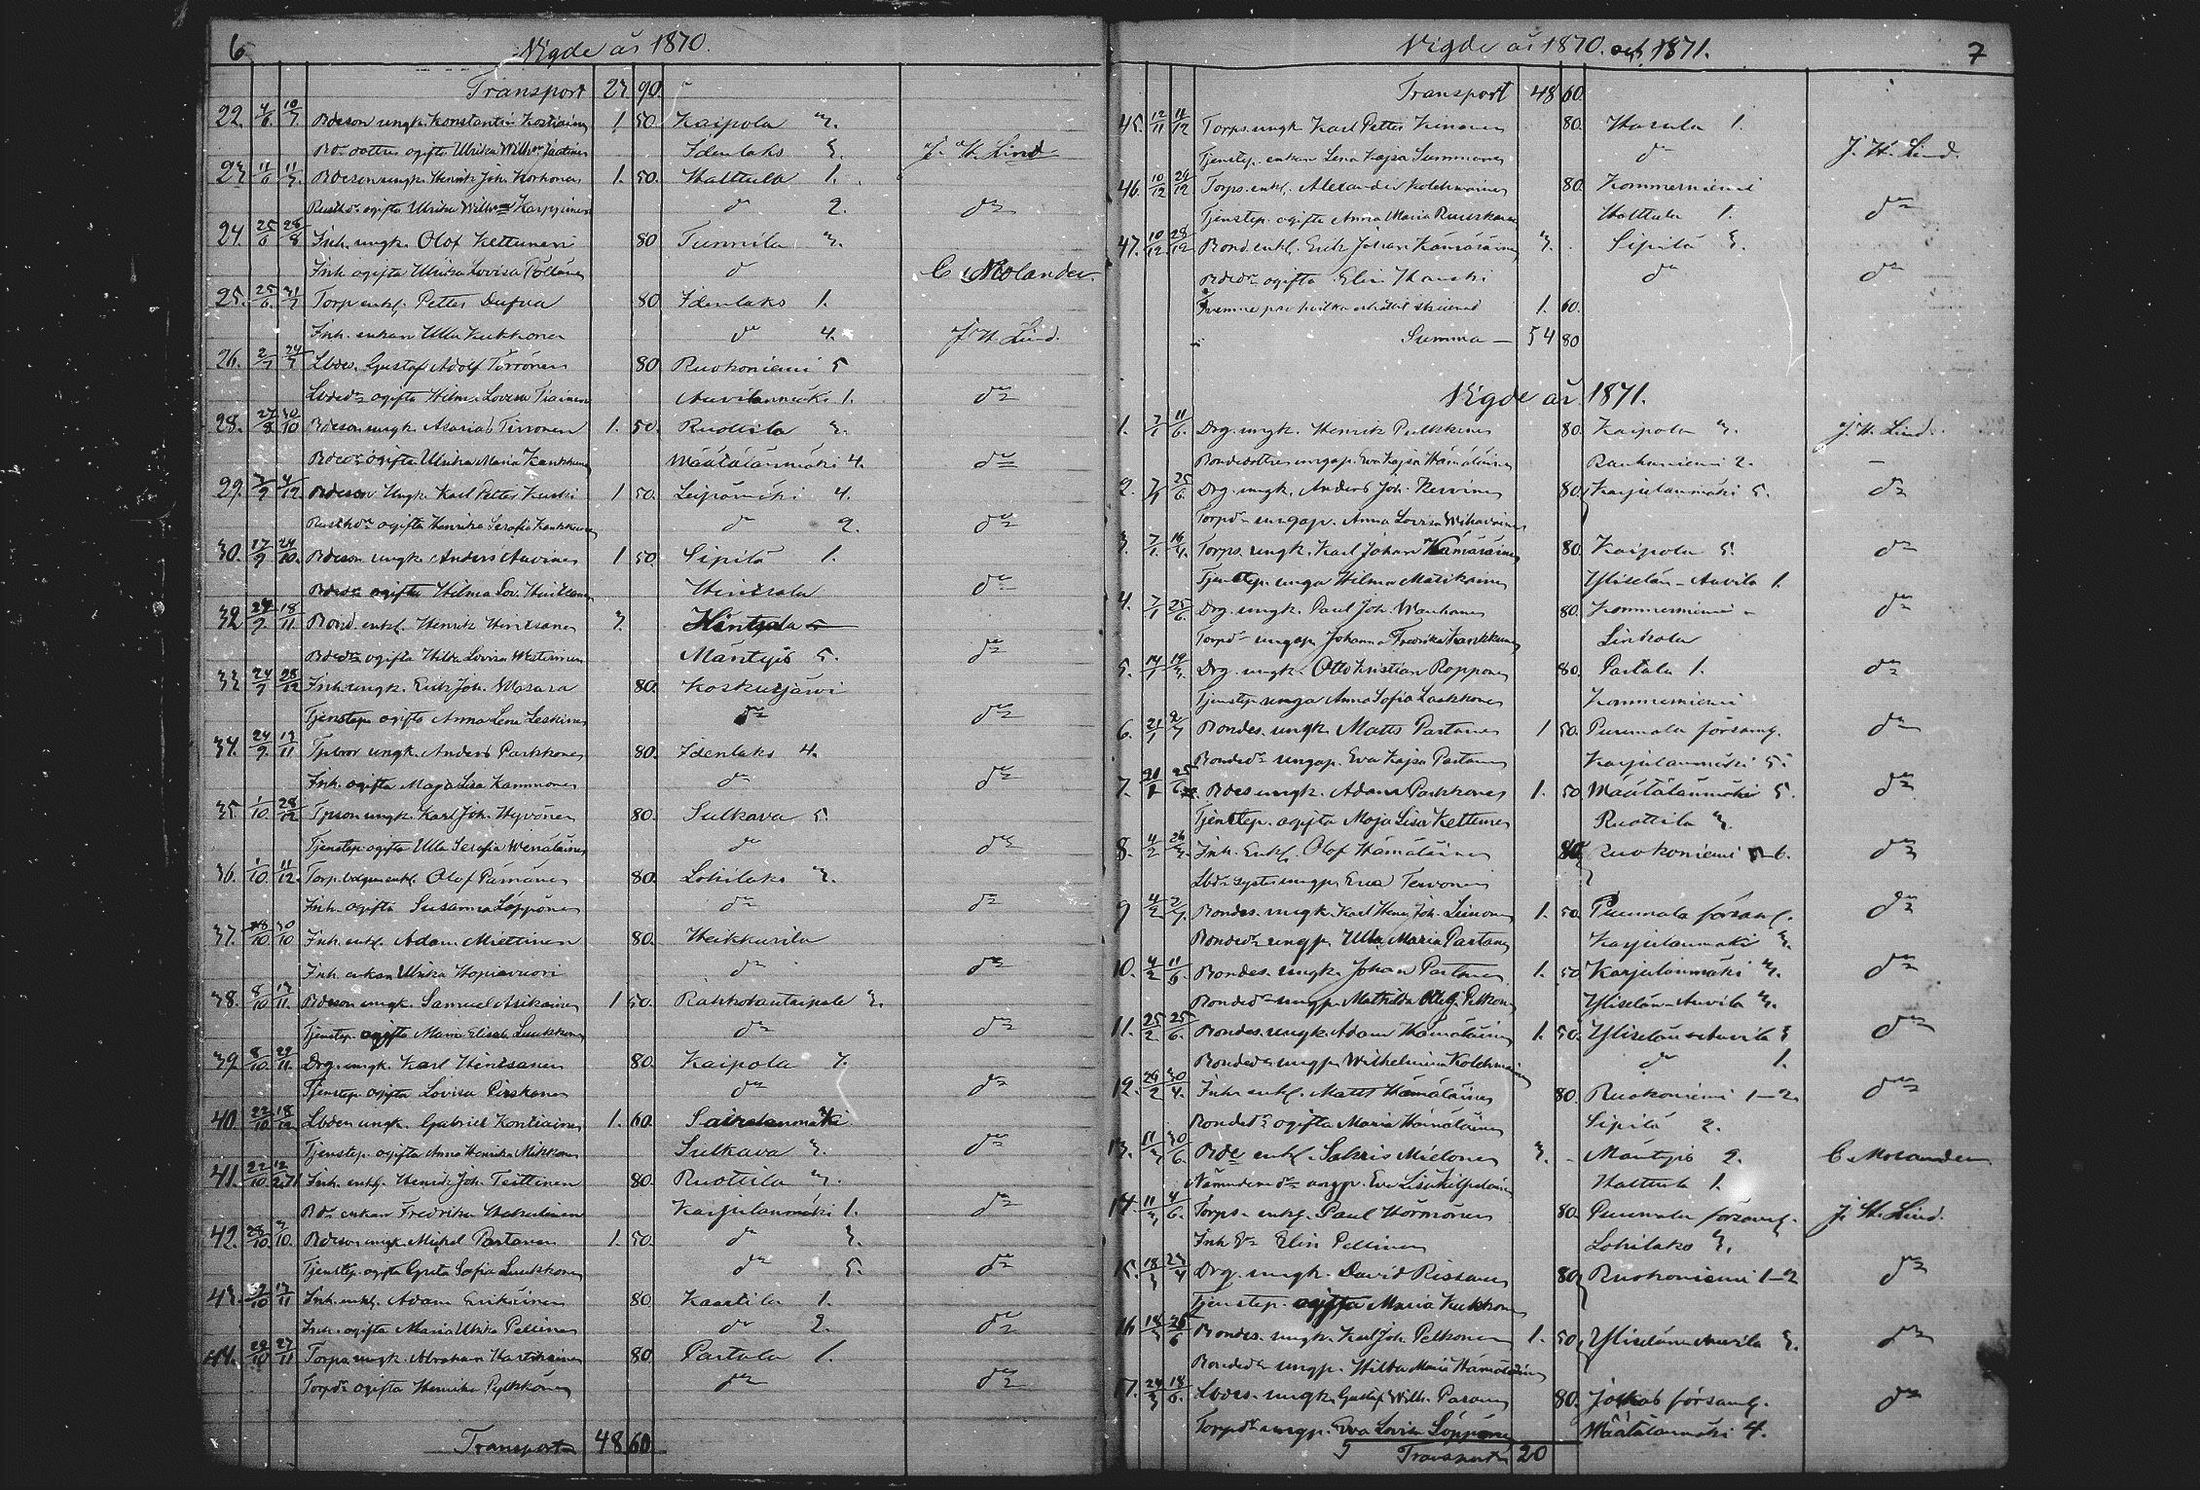 6
Vigde år 1870.
Transport 27 90.
22. 4/6 10/7 Bdeson ungk. Konstantin Kostiainen 1 50 Kaipola 3.
Bdr dottren ogifta Ulrika Idenlaks 3. J. H. Lind
23 11/6 11/7 Bdeson ungk. Henrik Joh. Korhonen 1. 50. Halttula 1.
ogifta Ulrika Karppinen do 2. do
24. 25/6 28/8 Inh. ungk. Olof Kettunen 80 Tunnila 3.
Inh. ogifta Ulrika Lovisa Pöllänen do C. Molander
25. 25/6 31/7 Torp enkl. Petter Dufva 80. Idenlaks 1.
Inh. enkan Ulla Kukkonen do 4. J. H. Lind.
26. 2/7 24/7 Lbdes. Gustaf Adolf Törrönen 80 Ruokoniemi 5
ogifta Hilma Lovisa Tiainen Auvilanmäki 1. do
28. 27/8 30/10 Bdeson ungk. Asarias Tirronen 1. 50. Ruottila 3.
ogifta Ulrika Maria Kankkunen Määtälänmäki 4. do
29. 3/9 4/12 Bdeson Ungk. Karl Petter Kurki 1 50. Leipämäki 4.
ogifta Henrika Serafia Kankkunen do 2. do
30. 17/9 24/10. Bdeson ungk. Anders Auvinen 1 50 Sipilä 1.
ogifta Hilma Lov. Hintsala do
32 24/9 18/11. Bond. enkl. Henrik Hintsanen 3. Hintsala
ogifta Hilda Lovisa Westerinen Mäntyis 5. do
33 24/9 28/12 Inh. ungk. Erik Joh. Masara 80. Koskutjärvi
Tjenstep. ogifta Anna Lena Leskinen do do
34. 24/9. 13/11 Tpson ungk. Anders Parkkonen 80. Idenlaks 4.
Inh. ogifta Maja Lisa Kammonen do do
35 1/10. 28/12 Tpson ungk. Karl Joh. Hyvönen 80. Sulkava 5
Tjenstep. ogifta Ulla Serafia Wenäläinen do do
36. 1/10. 11/12. Torp. enkl. Olof Parnänen 80. Lohilaks 3.
Inh. ogifta Susanna Loppönen do do
37. 8/10 30/10 Inh. enkl. Adam Miettinen 80. Heikkurila
Inh. enkan Ulrika Hopiavuori do do
38. 8/10 13/11. Bdeson ungk. Samuel Asikainen 1 50. Rahkolantaipale 3.
Tjenstep. ogifta Maria Elisab. Luukkonen do do
39 8/10. 29/11. Drg. ungk. Karl Hintsanen 80. Kaipola 4.
Tjenstep. ogifta Lovisa Pirskanen do do
40. 22/10 18/12 Lbdson ungk. Gabriel Kontiainen 1. 60.
Tjenstep. ogifta Anna Henrika Mikkonen Sulkava 3. do
41. 22/10 Inh. enkl. Henrik Joh. Teittinen 80. Ruottila 3.
enkan Fredrika Karjulanmäki 1. do
42. 28/10. Bdeson ungk. Mickel Partanen 1. 50. do 3.
Tjenstep. ogifta Greta Sofia Luukkonen do 5. do
43. 13/11 Inh. enkl. Adam Eriksinen 80 Kaartila 1.
Inh. ogifta Maria Ulrika Pellinen do 2. do
44. 29/10 27/11 Torps ungk. Abraham Hartikainen 80 Partala 1.
Torpdr ogifta Henrika Pylkkönen do do
Transport 48 60
7
Vigde år 1870. och 1871.
Transport 48 60.
45. 12/11 11/12 Torps. ungk. Karl Petter Kinnunen 80. Harula 1.
Tjenstep. enkan Lena Kajsa Summanen do J. H. Lind.
46. 10/12 26/12 Torps. enkl. Alexander Kolehmainen 80. Kommerniemi
Tjenstep. ogifta Anna Maria Ruuskanen Halttula 1. do
47. 10/12 28/12 Bond. enkl. Erik Johan Kämäräinen 3. Sipilä 3.
ogifta Elin do do
1. 60.
Summa — 54 80
Vigde år 1871.
1. 7/1 11/6. Drg. ungk. Henrik Pulkkinen 80. Kaipola 3. J. H. Lind.
Bondedottren ungp. Eva Kajsa Hämäläinen Rauhaniemi 2. —
2. 7/1 25/6. Drg. ungk. Anders Joh. Kervinen 80. Karjulanmäki 5. do
Torpdr ungp. Anna Lovisa Wihavainen
3. 7/1. 16/4. Torps. ungk. Karl Johan Kämäräinen 80. Kaipola 5. do
Tjenstep. unga Hilma Matikainen Yliselän-Auvila 1.
4. 7/1 25/6. Drg. ungk. Paul Joh. Wauhkonen 80. Kommerniemi - do
Torpdr ungp. Johanna Fredrika Kankkunen Linkola
5. 14/1 19/3. Drg. ungk. Otto Kristian Ropponen 80. Partala 1. do
Tjenstep. unga Anna Sofia Laukkonen Kommerniemi
6. 21/1 2/7 Bondes. ungk. Matts Partanen 1 50. Puumala församl. do
Bondedr ungp. Eva Kajsa Partanen Karjulanmäki 5.
7. 21/1 25/6 Bdes ungk. Adam Parkkonen 1. 50 Määtälänmäki 5. do
Tjenstep. ogifta Maja Lisa Kettunen Ruottila 3.
8. 4/2 26/3. Inh. Enkl. Olof Hämäläinen 80 Ruokoniemi 5-6. do
ungp. Eva Tervonen
9 4/2 2/7. Bondes. ungk. Karl Henr. Joh. Leinonen 1. 50 Puumala församl. do
Bondedr ungp. Ulla Maria Partanen Karjulanmäki 3.
10. 4/2 11/6 Bondes. ungk. Johan Partanen 1. 50 Karjulanmäki 3. do
Bondedr ungp. Mathilda Pelkonen Yliselän-Auvila 3.
11. 25/2 25/6. Bondes. ungk. Adam Hämäläinen 1. 50. Yliselän Auvila 3 do
Bondedr ungp. Wilhelmina Kolehmainen do 1.
12. 30/4. Inh. enkl. Matts Hämäläinen 80. Ruokoniemi 1-2 do
Bondedr ogifta Maria Hämäläinen Sipilä 2.
13. 11/3 30/6 Bde enkl. Sakris Mielonen 3. - Mäntyis 2. C. Molander
ungp. Eva Lisa Kilpeläinen Halttula 1.
14. 11/3 4/6. Torps. enkl. Paul Hörmönen 80. Puumala församl. J. H. Lind.
Inh. dr Elin Pellinen Lohilaks 3.
15. 18/3 23/4 Drg. ungk. David Rissanen 80 Ruokoniemi 1-2 do
Tjenstep. ogifta Maria Kukkonen
16 18/3 25/6 Bondes. ungk. Karl Joh. Pelkonen 1. 50 Yliselän Auvila 3. do
Bondedr ungp. Hilda Maria Hämäläinen
17. 24/3 18/6. Lbdes. ungk. Gustaf Wilh. Paronen 80. Jokkas församl. do
Torpdr ungp. Eva Lovisa Löppönen Määtälänmäki 4.
Transport 20